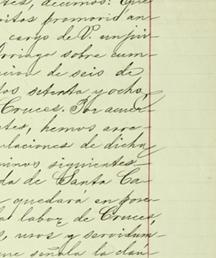 tes, decimos: Que
ritos promovió an
cargo de V. un jui
Arriaga sobre cum
cion de seis de
tos setenta y ocho,
Cruces. Por acuer
tes, hemos arre
ulaciones de dicha
minos siguientes
da de Santa Ca
quedará en pose
al labor de Cruces,
s, usos y servidum-
ue señala la cláu